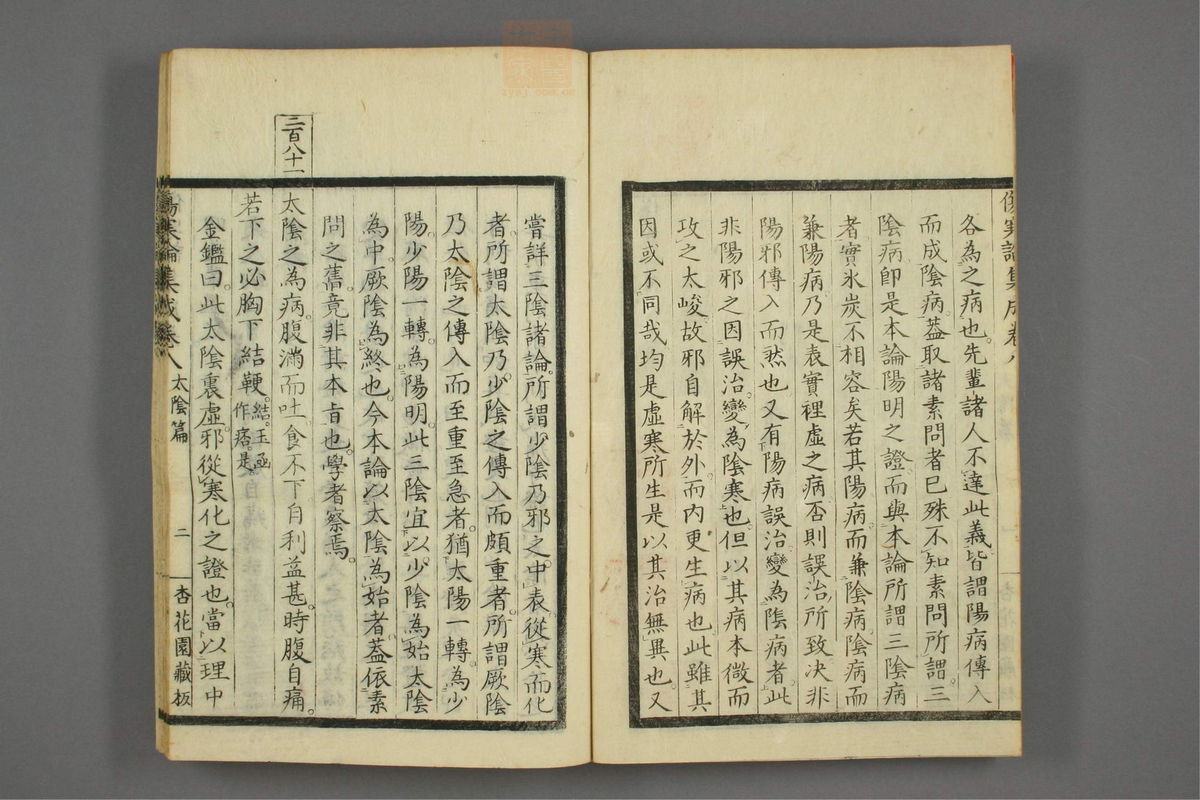 傷寒論集成卷八
各為之病也先輩諸人不達此義皆謂陽病傳入
而成陰病蓋取諸素問者已殊不知素問所謂三
陰病卽是本論陽明之證而與本論所謂三陰病
者實氷炭不相容矣若其陽病而兼陰病陰病而
兼陽病乃是表實裡虛之病否則誤治所致决非
陽邪傳入而然也又有陽病誤治變為陰病者此
非陽邪之因誤治變為陰寒也但以其病本微而
攻之太峻故邪自解於外而內更生病也此雖其
因或不同哉均是虛寒所生是以其治無異也又
嘗詳三陰諸論所謂少陰乃邪之中表從寒而化
者所謂太陰乃少陰之傳入而頗重者所謂厥陰
乃太陰之傳入而至重至急者猶太陽一轉為少
陽少陽一轉為陽明此三陰宜以少陰為始太陰
為中厥陰為終也今本論以太陰為始者蓋依素
問之舊竟非其本旨也學者察焉
三百八十一
太陰之為病腹滿而吐食不下自利益甚時腹自痛
若下之必胸下結鞕結玉函作痞是
金鑑曰此太陰裏虛邪從寒化之證也當以理中
傷寒論集成卷八 太陰篇 二 杏花園藏板